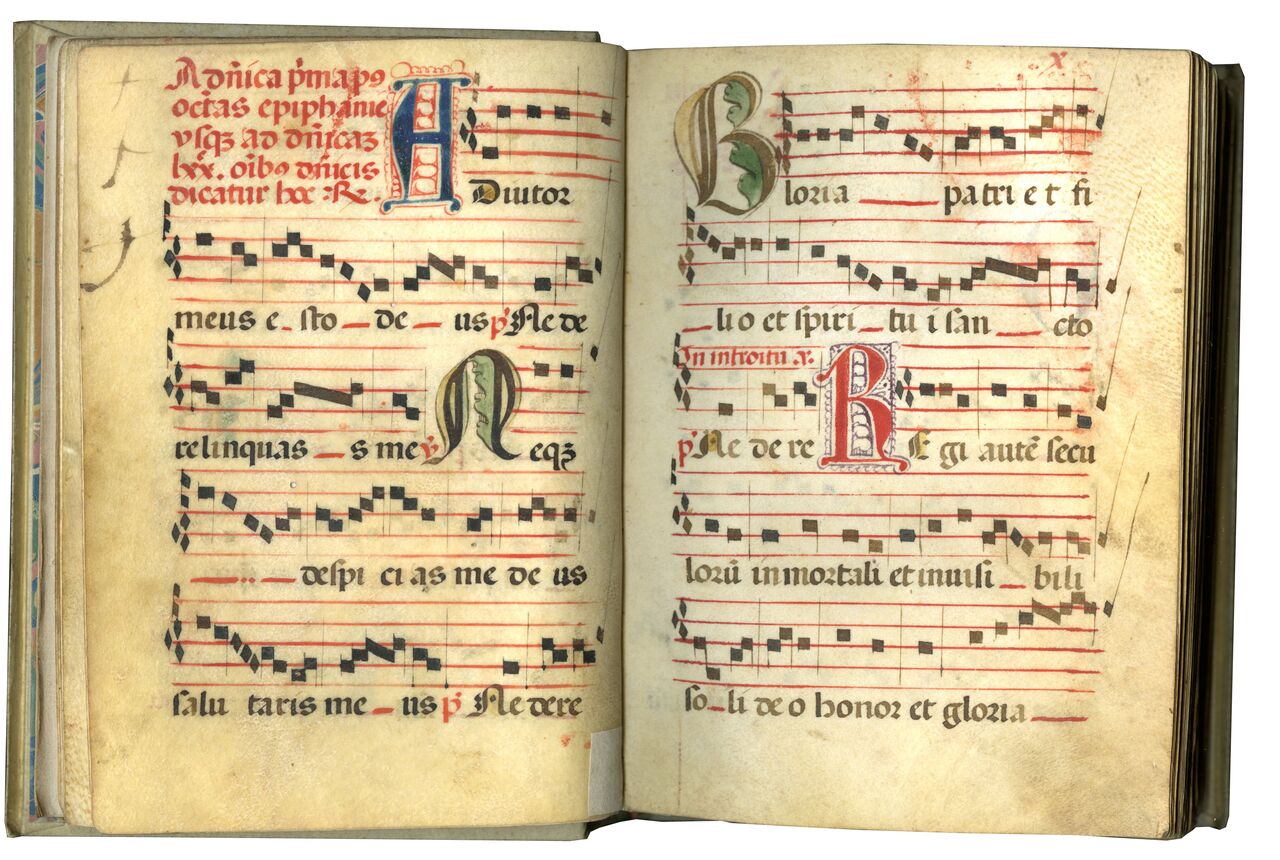 A dñica p̃ma p9
octas epiphanie
vsqꝫ ad dñicaꝫ
lxx. oĩbꝯ dñicis
dicatur hoc ꝶ.
A Diutor
meus e_sto_de_us p̃ Ne de
relinquas_s me ℣ N eqꝫ
__.._despi ci as me de us
salu taris me_us p̃ Ne de re
x
G loria ___ patri e t fi
_li o et spiri_tu i san__cto
In introitu ℣.
p̃ Ne de re R E gi autẽ secu
lorũ inmortali et inuisi_bili
so_li de o honor et gloria__